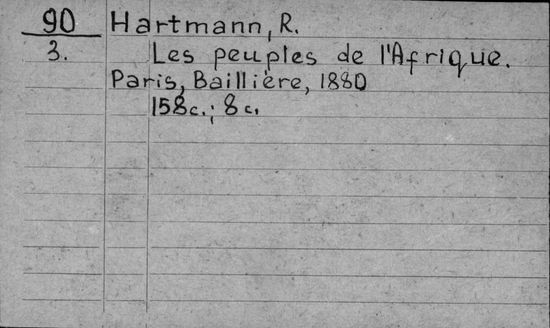 90 Hartmann, R.
3. Les peuples de l'Afrique.
Paris, Baillière, 1880
158c.; 8c.